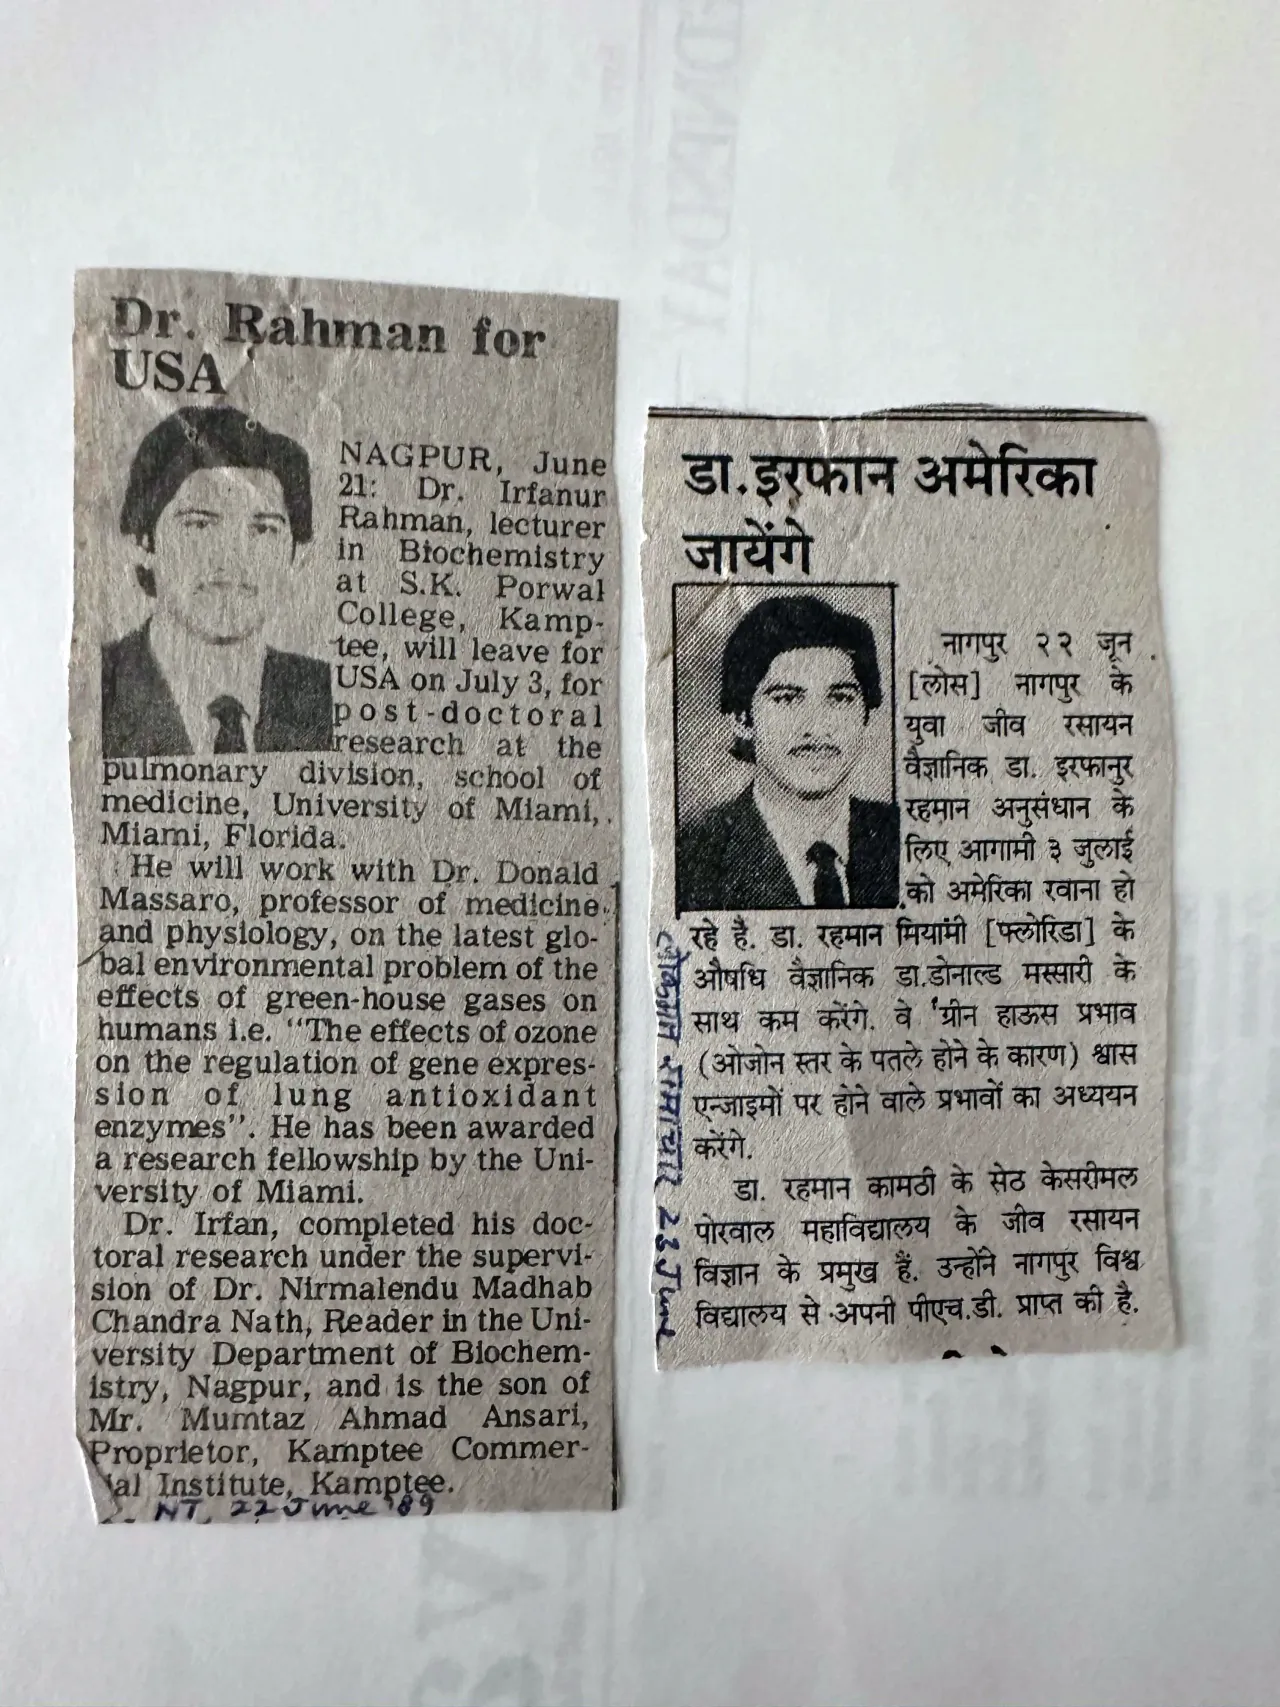 Dr. Rahman for
USA
NAGPUR, June
21: Dr. Irfanur
Rahman, lecturer
in Biochemistry
at S.K. Porwal
College, Kamp-
tee, will leave for
USA on July 3, for
post-doctoral
research at the
pulmonary division, school of
medicine, University of Miami,
Miami, Florida.
He will work with Dr. Donald
Massaro, professor of medicine
and physiology, on the latest glo-
bal environmental problem of the
effects of green-house gases on
humans i.e. "The effects of ozone
on the regulation of gene expres-
sion of lung antioxidant
enzymes". He has been awarded
a research fellowship by the Uni-
versity of Miami.
Dr. Irfan, completed his doc-
toral research under the supervi-
sion of Dr. Nirmalendu Madhab
Chandra Nath, Reader in the Uni-
versity Department of Biochem-
istry, Nagpur, and is the son of
Mr. Mumtaz Ahmad Ansari,
Proprietor, Kamptee Commer-
ial Institute, Kamptee.
NT, 22 June '89
डा. इरफान अमेरिका
जायेंगे
नागपुर २२ जून
[लोस] नागपुर के
युवा जीव रसायन
वैज्ञानिक डा. इरफानुर
रहमान अनुसंधान के
लिए आगामी ३ जुलाई
को अमेरिका रवाना हो
रहे है. डा. रहमान मियांमी [फ्लोरिडा] के
औषधि वैज्ञानिक डा.डोनाल्ड मस्सारी के
साथ कम करेंगे. वे 'ग्रीन हाऊस प्रभाव
(ओजोन स्तर के पतले होने के कारण) श्वास
एन्जाइमों पर होने वाले प्रभावों का अध्ययन
करेंगे.
डा. रहमान कामठी के सेठ केसरीमल
पोरवाल महाविद्यालय के जीव रसायन
विज्ञान के प्रमुख हैं. उन्होंने नागपुर विश्व
विद्यालय से अपनी पीएच.डी. प्राप्त की है.
लोकमत समाचार 23 June